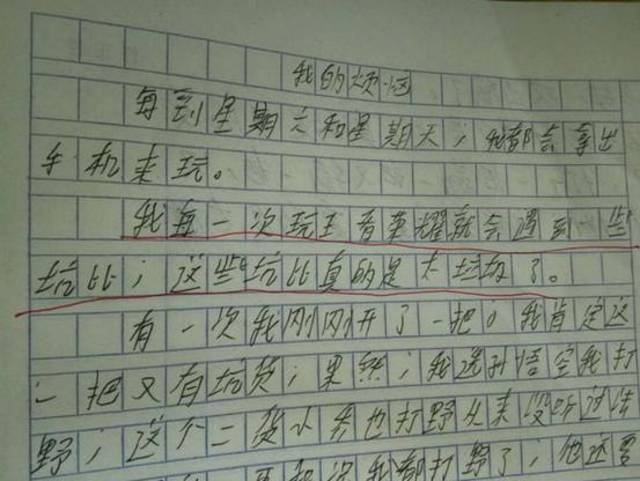 我的烦恼
每到星期六和星期天，我都会拿出
手机来玩。
我每一次玩王者荣耀就会遇到一些
坑比，这些坑比真的是太垃圾了。
有一次我刚刚开了一把，我肯定这
一把又有坑货，果然，我选孙悟空我打
野，这个二货小乔也打野从来没听过法
我都打野了，他还要